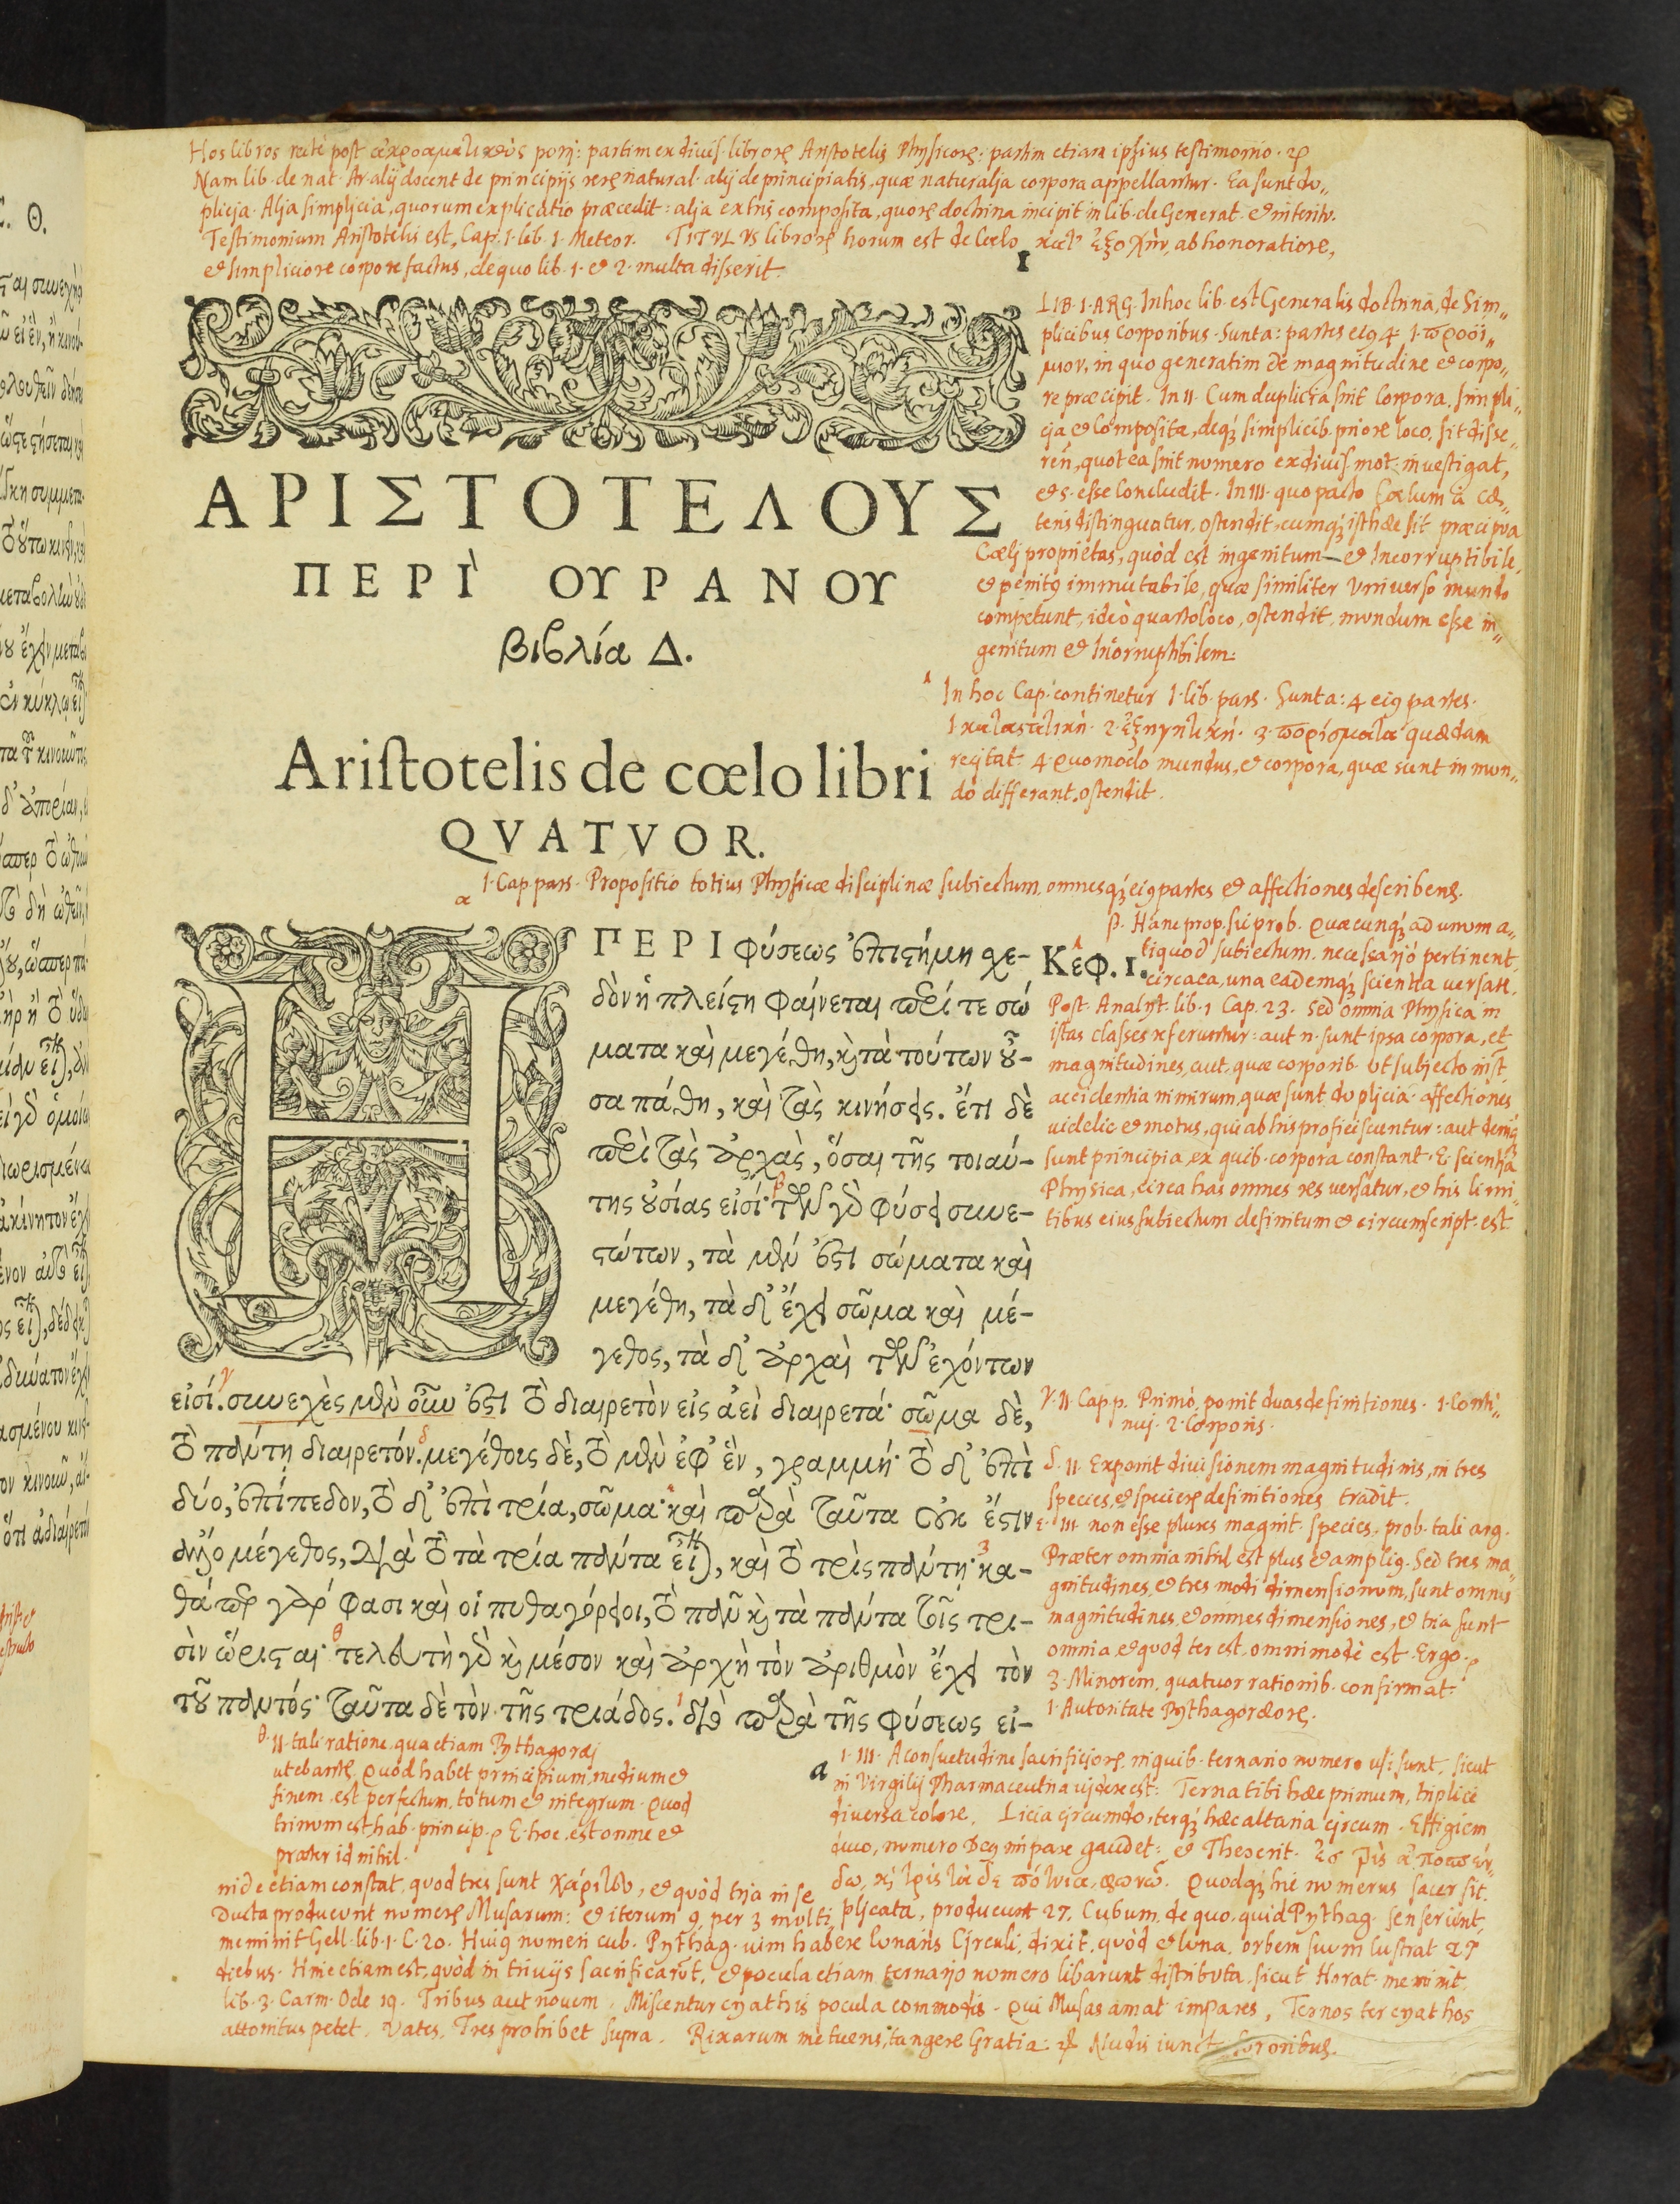 Hos libros recte post ἀκροαματικοὺς poni: partim ex divis. librorum Aristotelis Physicorum: partim etiam ipsius testimonio.
Nam lib. de nat. Ar. alij docent de principijs rerum natural. alij de principiatis, quæ naturalia corpora appellantur. Ea sunt du„
plicia. Alja simplicia, quorum explicatio præcedit: alja ex his composita, quorum doctrina incipit in lib. de Generat. et interitu.
Testimonium Aristotelis est, Cap. 1. lib. 1. Meteor. TITVLVS librorum horum est de Cœlo κατ' ἐξοχὴν, ab honoratiore,
et simpliciore corpore factus, de quo lib. 1. et 2. multa disserit.
1
LIB. 1. ARG. In hoc lib. est Generalis doctrina, de Sim„
plicibus corporibus. Sunt a: partes eius 4 1. προοί„
μιον, in quo generatim de magnitudine et corpo„
re præcipit. In II. Cum duplicia sint Corpora. simpli„
cia et Composita, deque simplicib. priore loco, sit disse„
ren., quot ea sint numero ex divis. mot. investigat,
et 5. esse concludit. In III. quo pacto Cœlum à cæ„
teris distinguatur, ostendit, cumque isthæc sit præcipua
Cælj proprietas, quòd est ingenitum et Incorruptibile,
et penitus immutabile, quæ similiter Vniverso mundo
competunt, ideò quarto loco, ostendit, mundum esse in„
genitum et Incorruptibilem.
ΑΡΙΣΤΟΤΕΛΟΥΣ
ΠΕΡΙ` ΟΥΡΑΝΟΥ
βιβλία Δ.
In hoc Cap. continetur 1. lib. pars. Sunt a: 4 eius partes.
1 καταστατικὴ. 2. ἐξηγητικὴ. 3. πορίσματα quædam
recitat. 4 Quomodo mundus, et corpora, quæ sunt in mun„
do differant, ostendit.
Ariſtotelis de cœlo libri
QVATVOR.
α 1. Cap. pars. Propositio totius Physicæ disciplinæ subiectum, omnesque eius partes et affectiones describens.
β. Hanc prop. sic prob. Quæcunque ad unum a„
liquod subiectum necessariò pertinent,
circa ea, una eademque scientia versatur.
Post. Analyt. lib. 1 Cap. 23. Sed omnia Physica in
istas classes referuntur: aut n. sunt ipsa corpora, et
magnitudines, aut, quæ corporib. ut subjecto inst.
accidentia nimirum, quæ sunt duplicia. affectiones
videlic. et motus, qui ab his proficiscuntur: aut denique
sunt principia, ex quib. corpora constant. E. scientia
Physica, circa has omnes res versatur, et his limi„
tibus eius subiectum definitum et circumscript. est.
ΠΕΡΙ φύσεως ἐπιστήμη σχε-
Κεφ. 1.
δὸν ἡ πλείστη φαίνεται περί τε σώ
ματα καὶ μεγέθη, καὶ τὰ τούτων οὖ-
σα πάθη, καὶ τὰς κινήσεις. ἔτι δὲ
περὶ τὰς ἀρχὰς, ὅσαι τῆς τοιαύ-
της οὐσίας εἰσί· τῶν γὰρ φύσει συνε-
στώτων, τὰ μέν ἐστι σώματα καὶ
μεγέθη, τὰ δ' ἔχει σῶμα καὶ μέ-
γεθος, τὰ δ' ἀρχαὶ τῶν ἐχόντων
εἰσί. συνεχὲς μὲν οὖν ἐστι τὸ διαιρετὸν εἰς ἀεὶ διαιρετά· σῶμα δὲ,
τὸ πάντη διαιρετόν. μεγέθους δὲ, τὸ μὲν ἐφ' ἓν, γραμμή· τὸ δ' ἐπὶ
δύο, ἐπίπεδον, τὸ δ' ἐπὶ τρία, σῶμα· καὶ παρὰ ταῦτα οὐκ ἔστιν
ἄλλο μέγεθος, διὰ τὸ τὰ τρία πάντα εἶναι, καὶ τὸ τρὶς πάντη· κα-
θάπερ γάρ φασι καὶ οἱ πυθαγόρειοι, τὸ πᾶν καὶ τὰ πάντα τοῖς τρι-
σὶν ὥρισται· τελευτὴ γὰρ καὶ μέσον καὶ ἀρχὴ τὸν ἀριθμὸν ἔχει τὸν
τοῦ παντός· ταῦτα δὲ τὸν τῆς τριάδος. διὸ παρὰ τῆς φύσεως εἰ-
a
γ. II. Cap. p. Primò, ponit duas definitiones. 1. Conti„
nuj. 2. Corporis.
δ. II. Exponit divisionem magnitudinis, in tres
species, et specierum definitiones tradit.
ε. III. non esse plures magnit. species, prob. tali arg.
Præter omnia nihil est plus et amplius. Sed tres ma„
gnitudines, et tres modi dimensionum, sunt omnes
magnitudines, et omnes dimensiones, et tria sunt
omnia et quod ter est, omnimodè est. Ergo.
3. Minorem, quatuor rationib. confirmat.
1. Autoritate Pythagoræorum.
θ. II. tali ratione, qua etiam Pythagoræi
utebantur. Quòd habet principium, medium et
finem, est perfectum, totum et integrum. Quod
trinum est, hab. princip. E. hoc, est omne et
præter id nihil.
1. III. A consuetudine sacrificiorum, in quib. ternario numero usi sunt, sicut
in Virgilij Pharmaceutria videre est: Terna tibi hæc primum, triplici
diversa colore, Licia circumdo, terque hæc altaria circum. Effigiem
duco, numero Deus impare gaudet: et Theocrit. Ἐς τρὶς ἀποσπέν„
δω, καὶ τρὶς τάδε πότνια, φωνῶ. Quodque hic numerus sacer sit.
inde etiam constat, quod tres sunt χάριτες, et quòd tria in se
ducta producunt numerum Musarum: et iterum 9, per 3 multi
plicata, producunt 27, Cubum, de quo, quid Pythag. senserint,
meminit Gell. lib. 1. C. 20. Huius numeri cub. Pythag. vim habere lunaris Circuli, dixit, quòd et luna, orbem suum lustrat 27
diebus. Hinc etiam est, quòd in trivijs sacrificarunt, et pocula etiam ternario numero libarunt distributa, sicut Horat. meminit
lib. 3. Carm. Ode 19. Tribus aut novem. Miscentur cyathis pocula commodis. Qui Musas amat impares, Ternos ter cyathos
attonitus petet, Vates, Tres prohibet supra. Rixarum metuens, tangere Gratia: Nudis iunct sororibus.